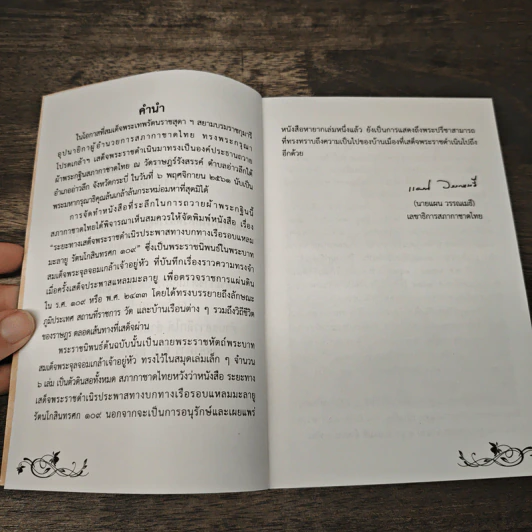 คำนำ
ในโอกาสที่สมเด็จพระเทพรัตนราชสุดา ฯ สยามบรมราชกุมารี
อุปนายิกาผู้อำนวยการสภากาชาดไทย ทรงพระกรุณา
โปรดเกล้าฯ เสด็จพระราชดำเนินมาทรงเป็นองค์ประธานถวาย
ผ้าพระกฐินสภากาชาดไทย ณ วัดราษฎร์รังสรรค์ ตำบลอ่าวลึกใต้
อำเภออ่าวลึก จังหวัดกระบี่ ในวันที่ ๖ พฤศจิกายน ๒๕๖๑ นับเป็น
พระมหากรุณาธิคุณล้นเกล้าล้นกระหม่อมหาที่สุดมิได้
การจัดทำหนังสือที่ระลึกในการถวายผ้าพระกฐินนี้
สภากาชาดไทยได้พิจารณาเห็นสมควรให้จัดพิมพ์หนังสือ เรื่อง
"ระยะทางเสด็จพระราชดำเนิรประพาสทางบกทางเรือรอบแหลม
มะลายู รัตนโกสินทรศก ๑๐๙" ซึ่งเป็นพระราชนิพนธ์ในพระบาท
สมเด็จพระจุลจอมเกล้าเจ้าอยู่หัว ที่บันทึกเรื่องราวความทรงจำ
เมื่อครั้งเสด็จประพาสแหลมมะลายู เพื่อตรวจราชการแผ่นดิน
ใน ร.ศ. ๑๐๙ หรือ พ.ศ. ๒๔๓๓ โดยได้ทรงบรรยายถึงลักษณะ
ภูมิประเทศ สถานที่ราชการ วัด และบ้านเรือนต่าง ๆ รวมถึงวิถีชีวิต
ของราษฎร ตลอดเส้นทางที่เสด็จผ่าน
พระราชนิพนธ์ต้นฉบับนั้นเป็นลายพระราชหัตถ์พระบาท
สมเด็จพระจุลจอมเกล้าเจ้าอยู่หัว ทรงไว้ในสมุดเล่มเล็ก ๆ จำนวน
๖ เล่ม เป็นตัวดินสอทั้งหมด สภากาชาดไทยหวังว่าหนังสือ ระยะทาง
เสด็จพระราชดำเนิรประพาสทางบกทางเรือรอบแหลมมะลายู
รัตนโกสินทรศก ๑๐๙ นอกจากจะเป็นการอนุรักษ์และเผยแพร่
หนังสือหายากเล่มหนึ่งแล้ว ยังเป็นการแสดงถึงพระปรีชาสามารถ
ที่ทรงทราบถึงความเป็นไปของบ้านเมืองที่เสด็จพระราชดำเนินไปถึง
อีกด้วย
(นายแผน วรรณเมธี)
เลขาธิการสภากาชาดไทย